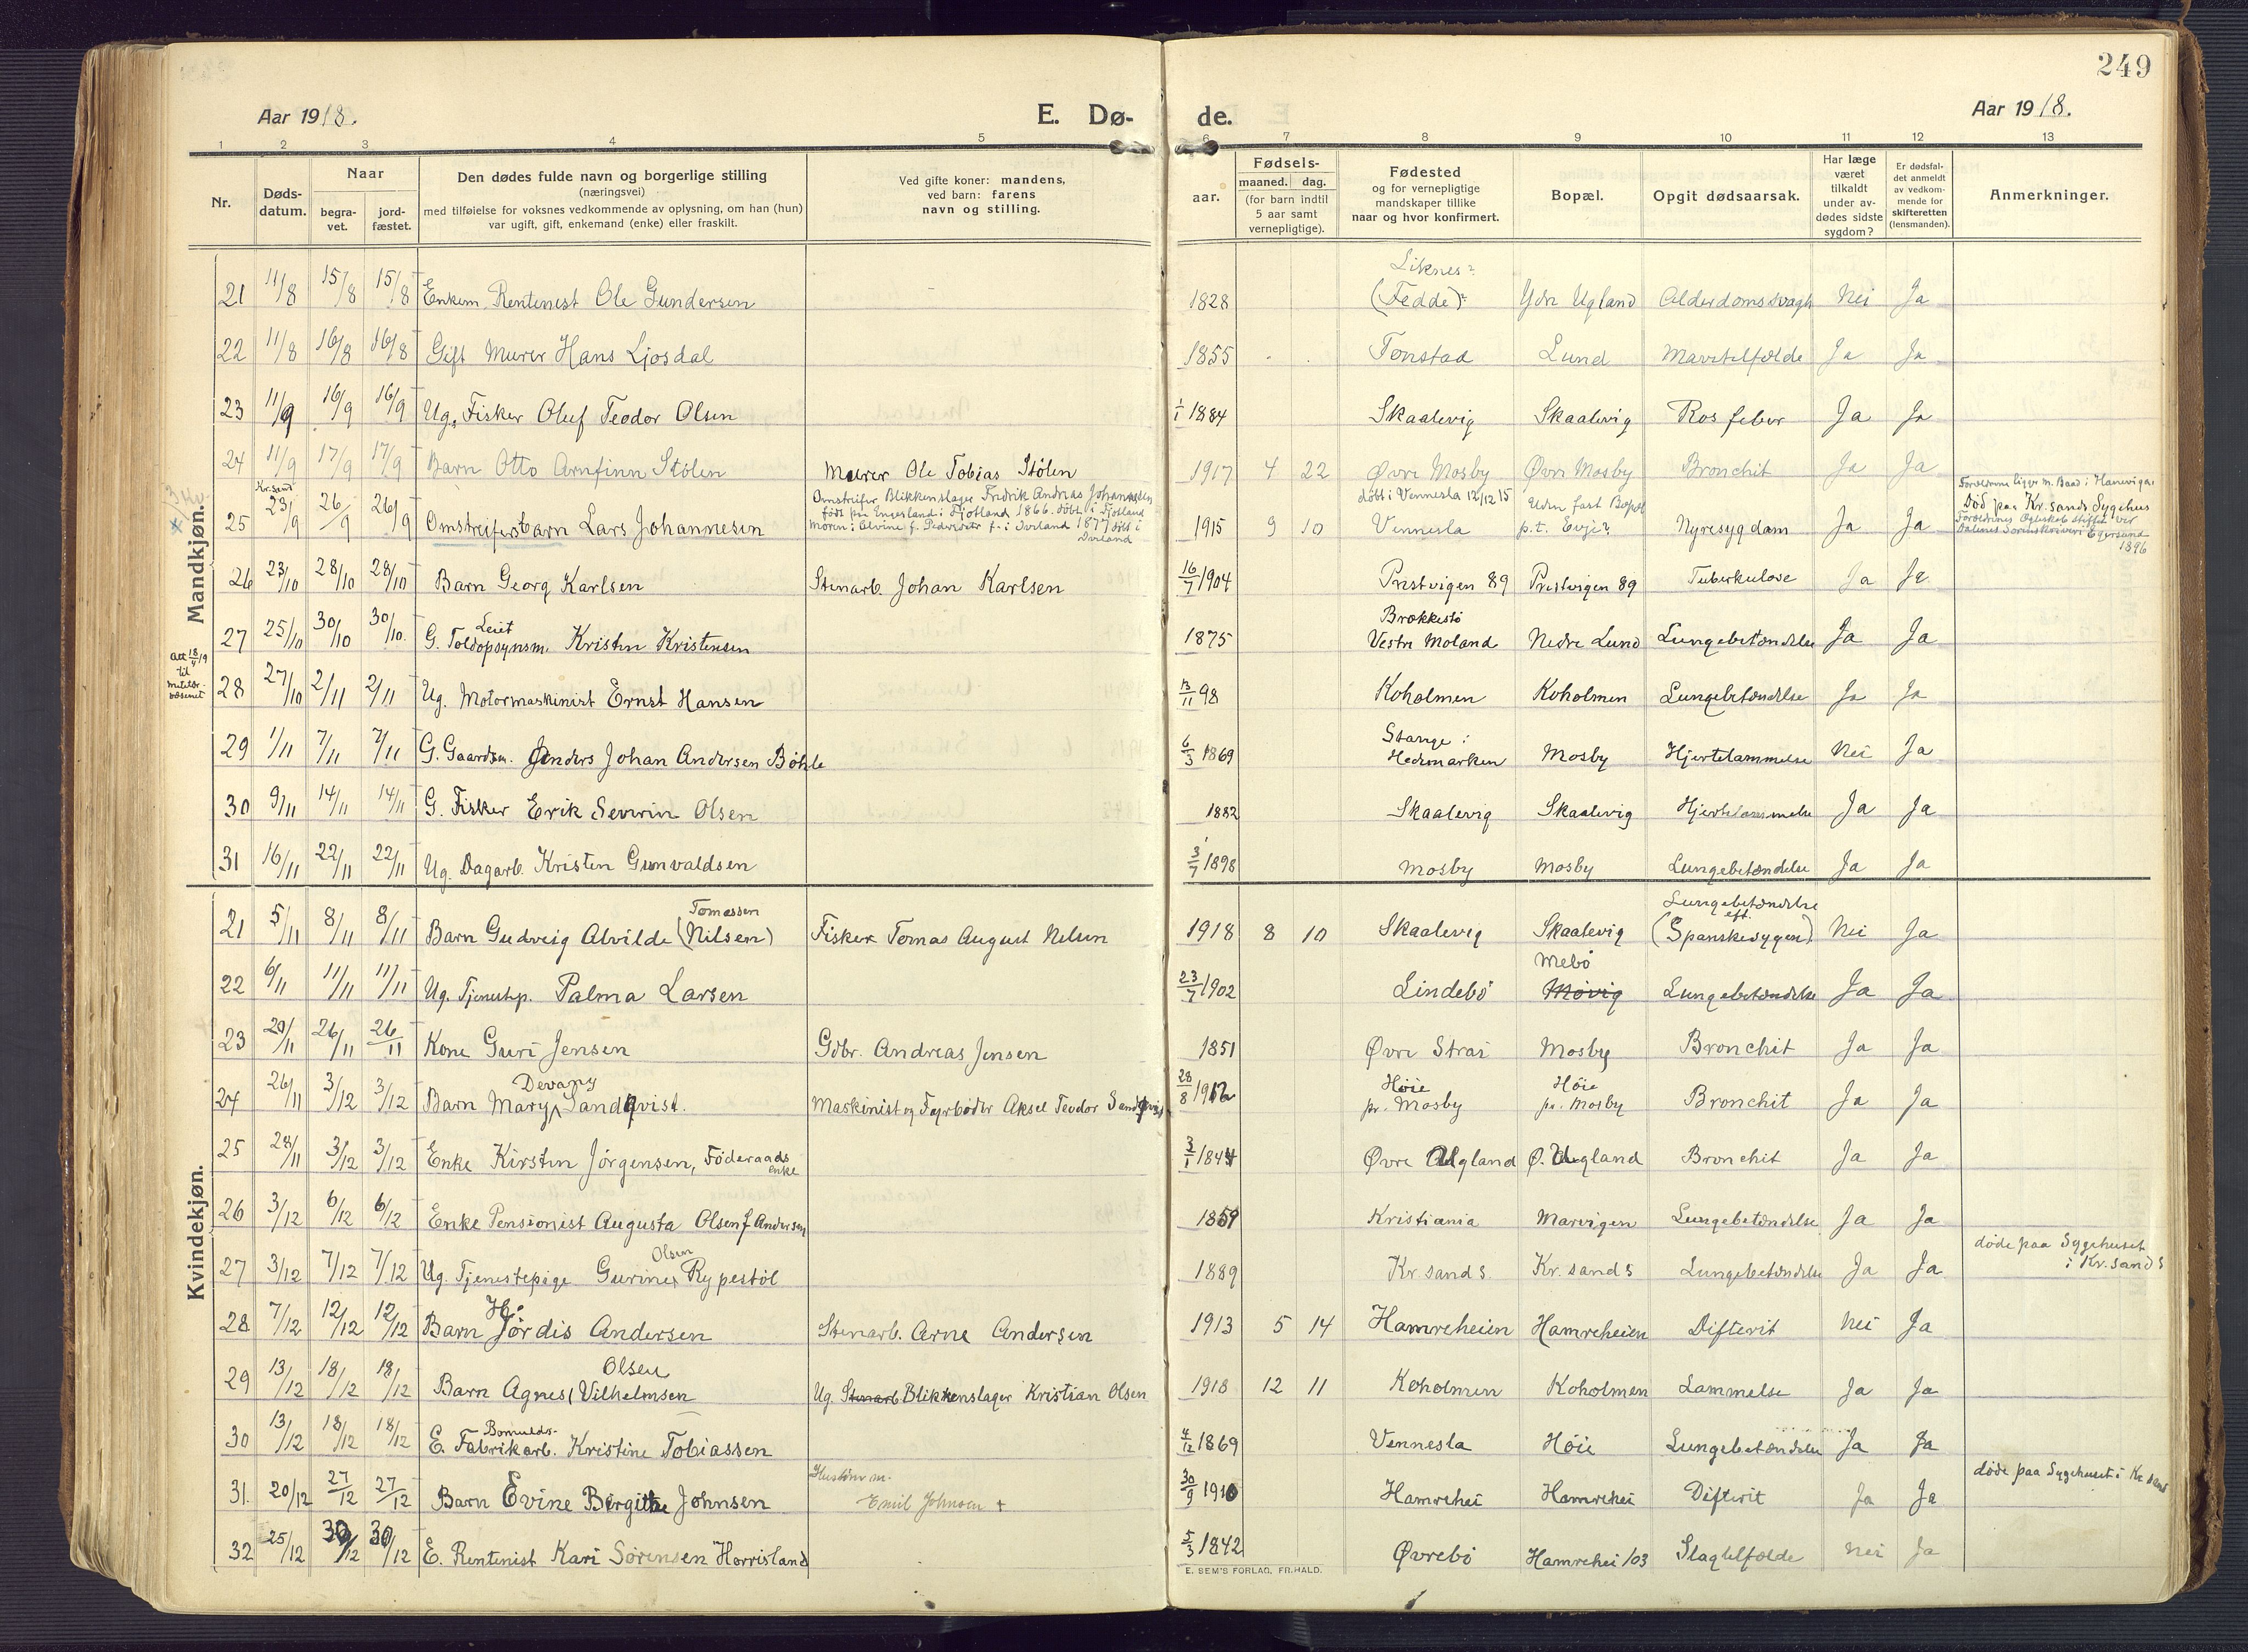 249
Aar 1918.
E. Dø-
de.
Aar 1918.
1 2 3 4 5 6 7 8 9 10 11 12 13
Nr.
Døds-
datum.
Naar
begra-
vet.
jord-
fæstet.
Den dødes fulde navn og borgerlige stilling
(næringsvei)
med tilføielse for voksnes vedkommende av oplysning, om han (hun)
var ugift, gift, enkemand (enke) eller fraskilt.
Ved gifte koner: mandens,
ved barn: farens
navn og stilling.
aar.
Fødsels-
maaned. dag.
(for barn indtil
5 aar samt
vernepligtige).
Fødested
og for vernepligtige
mandskaper tillike
naar og hvor konfirmert.
Bopæl.
Opgit dødsaarsak.
Har læge
været
tilkaldt
under av-
dødes sidste
sygdom?
Er dødsfal-
det anmeldt
av vedkom-
mende for
skifteretten
(lensmanden).
Anmerkninger.
Mandkjøn.
Liknes?
21 11/8 15/8 15/8 Enkem. Rentenist Ole Gundersen 1828 (Fedde)? Ydr Ugland Alderdomssvagh Nei Ja
22 11/8 16/8 16/8 Gift Murer Hans Ljosdal 1855 Tonstad Lund Mavetilfælde Ja Ja
23 11/9 16/9 16/9 Ug. Fisker Oluf Teodor Olsen 1/1 1884 Skaalevig Skaalevig Rosfeber Ja Ja
24 11/9 17/9 17/9 Barn Otto Arnfinn Stölen Murer Ole Tobias Stölen 1917 4 22 Øvre Mosby Øvre Mosby Bronchit Ja Ja
Kr.sand
Omstreifer Blikkenslager Fredrik Andreas Johannesen
født paa Engesland i Fjotland 1866. døbt i Fjotland
moren: Alvine f. Pedersdtr f. i Iveland 1877 døbt i
Iveland
døbt i Vennesla 12/12 15
Uden fast Bopæl
25 23/9 26/9 26/9 Omstreiferbarn Lars Johannesen 1915 9 10 Vennesla p.t. Evje? Nyresygdam Ja Ja
Død paa Kr.sands Sygehus
1896
26 23/10 28/10 28/10 Barn Georg Karlsen Stenarb. Johan Karlsen 16/7 1904 Prestvigen 89 Prestvigen 89 Tuberkulose Ja Ja
Leiet
Brækkestø
27 25/10 30/10 30/10. G. Toldopsynsm. Kristen Kristensen 1875 Vestre Moland Nedre Lund Lungebetændelse Ja Ja
Att 18/4 19
til
militær-
væsenet
28 27/10 2/11 2/11 Ug. Motormaskinist Ernst Hansen 13/11 98 Koholmen Koholmen Lungebetændelse Ja Ja
Stange:
29 1/11 7/11 7/11 G. Gaardm. Anders Johan Andersen Böhle 6/3 1869 Hedemarken Mosby Hjertelammelse Nei Ja
30 9/11 14/11 14/11 G. Fisker Erik Severin Olsen 1882 Skaalevig Skaalevig Hjertelammelse Ja Ja
31 16/11 22/11 22/11 Ug. Dagarb. Kristen Gunvaldsen 3/7 1898 Mosby Mosby Lungebetændelse Ja Ja
Kvindekjøn.
Tomassen
Lungebetændelse
eft.
21 5/11 8/11 8/11 Barn Gudveig Alvilde (Nilsen) Fisker Tomas August Nilsen 1918 8 10 Skaalevig Skaalevig (Spanskesygen) Nei Ja
Mebö
22 6/11 11/11 11/11 Ug. Tjenestep. Palma Larsen 23/7 1902 Lindebö Møvig Lungebetændelse Ja Ja
23 20/11 26/11 26/11 Kone Guri Jensen Gdbr. Andreas Jensen 1851 Øvre Strai Mosby Bronchit Ja Ja
Devany
Höie
Höie
24 26/11 3/12 3/12 Barn Mary Sandqvist. Maskinist og Fyrböder Aksel Teodor Sandqvist 28/8 1912 pr. Mosby pr. Mosby Bronchit Ja Ja
25 28/11 3/12 3/12 Enke Kirsten Jörgensen, Föderaads 3/1 1844 Øvre Ugland Ø. Ugland Bronchit Ja Ja
enke
26 3/12 6/12 6/12 Enke Pensionist Augusta Olsen f Andersen 1859 Kristiania Marvigen Lungebetændelse Ja Ja
Olsen
27 3/12 7/12 7/12 Ug. Tjenestepige Gurine Rypestöl 1889 Kr.sand S. Kr.sand S Lungebetændelse Ja Ja
døde paa Sygehuset
i Kr.sand S
Hj.
28 7/12 12/12 12/12 Barn Jördis Andersen Stenarb. Arne Andersen 1913 5 14 Hamreheien Hamreheien Difterit Nei Ja
Olsen
29 13/12 18/12 18/12 Barn Agnes Vilhelmsen Ug. Stenarb. Blikkenslager Kristian Olsen 1918 12 11 Koholmen Koholmen Lammelse Ja Ja
Bomulds-
30 13/12 18/12 18/12 E. Fabrikarb. Kristine Tobiassen 4/12 1869 Vennesla Höie Lungebetændelse Ja Ja
31. 20/12 27/12 27/12 Barn Evine Birgitte Johnsen Emil Johnsen + 30/9 1910 Hamrehei Hamrehei Difterit Ja Ja
døde paa Sygehuset i Kr sand
32 25/12 30/12 30/12 E. Rentenist Kari Sörensen Horrisland 5/3 1842 Øvrebö Hamrehei 103 Slagtilfælde Nei Ja
E. SEM'S FORLAG, FR.HALD.